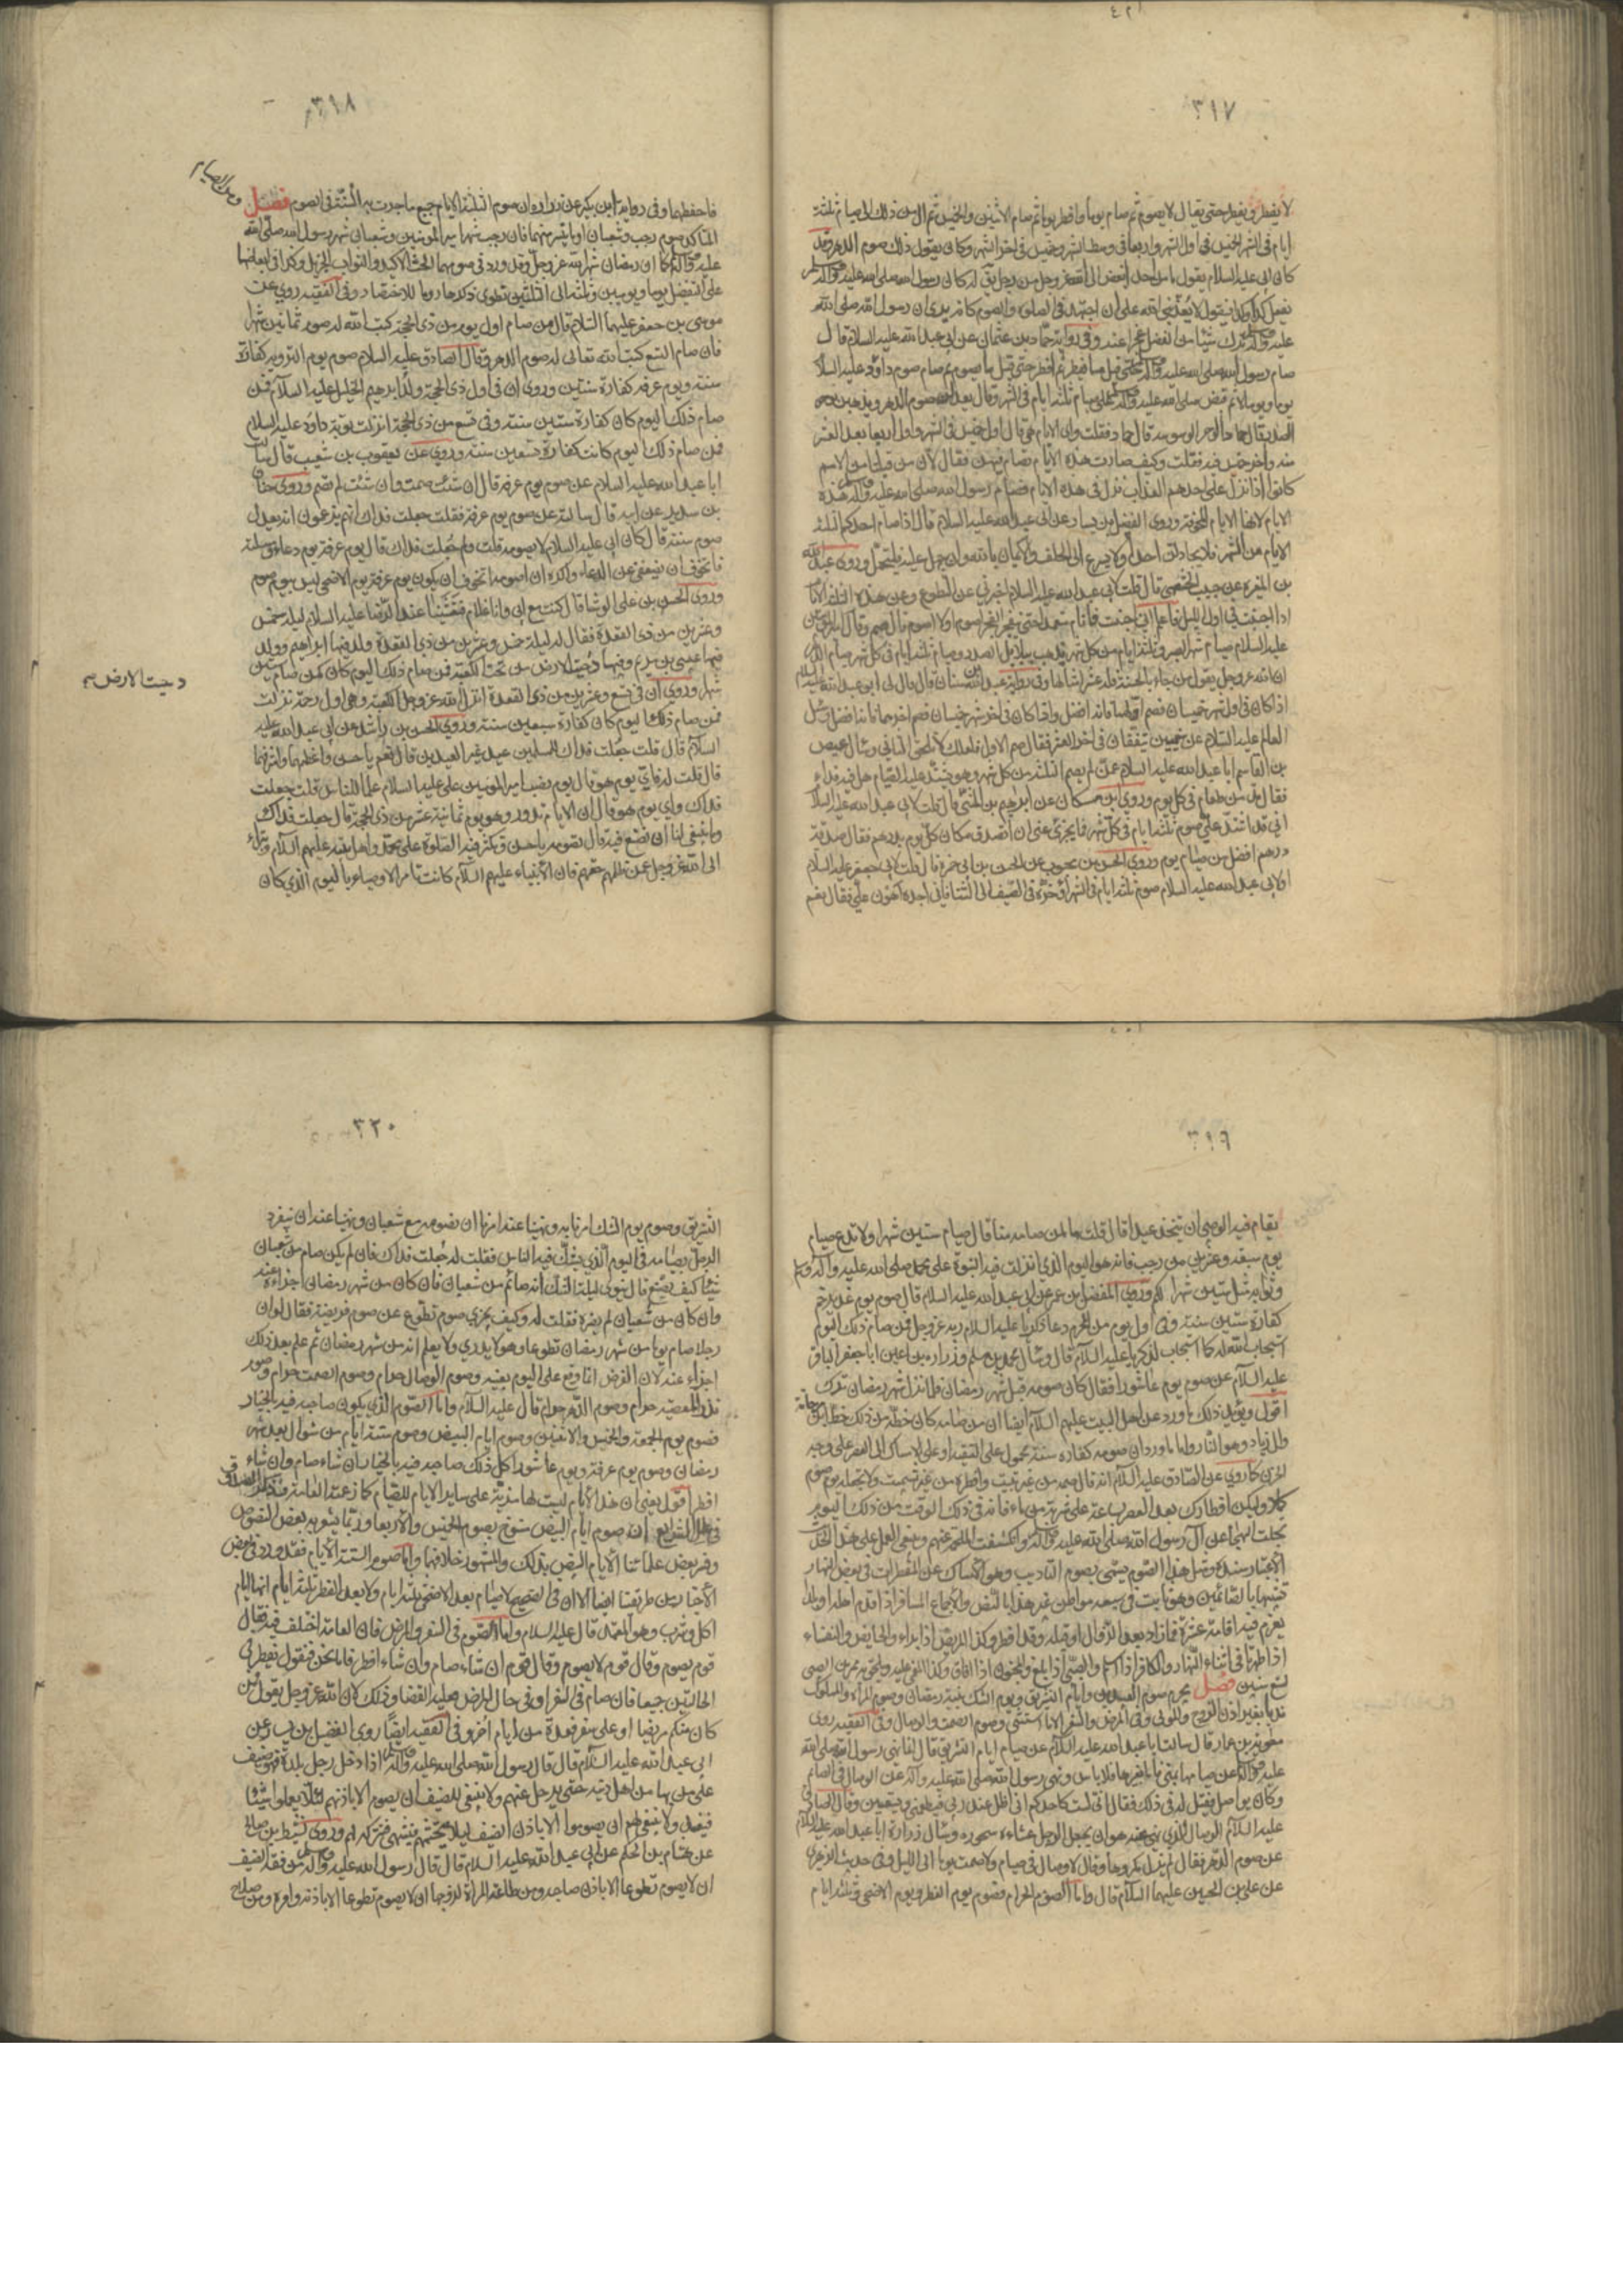 ٣١٧
لا يفطر ويفطر حتى يقال لا يصوم ثم صام يوما وافطر يوما ثم صام الاثنين والخميس ثم آل من ذلك الى صيام ثلثة
ايام في الشهر الخميس في اول الشهر واربعا في وسط الشهر وخميس في اخر الشهر وكان يقول ذلك صوم الدهر وقد
كان ابي عليه السلام يقول ما من احد ابغض الى الله عز وجل من رجل يقال له كان رسول الله صلى الله عليه وآله
يفعل كذا وكذا فيقول لا يعذبني الله على ان اجتهد في الصلوة والصوم كانه يرى ان رسول الله صلى الله
عليه وآله ترك شيئا من الفضل عجزا عنه وفي رواية حماد بن عثمان عن ابي عبد الله عليه السلام قال
صام رسول الله صلى الله عليه وآله حتى قيل ما يفطر ثم افطر حتى قيل ما يصوم ثم صام صوم داود عليه السلام
يوما ويوما لا ثم قبض صلى الله عليه وآله على صيام ثلثة ايام في الشهر وقال يعدلن صوم الدهر ويذهبن بوحر
الصدر قال حماد الوحر الوسوسة قال حماد فقلت واي الايام هي قال اول خميس في الشهر واول اربعا بعد العشر
منه واخر خميس فيه فقلت وكيف صارت هذه الايام تصام فيهن فقال لان من قبلنا من الامم
كانوا اذا نزل على احدهم العذاب نزل في هذه الايام فصام رسول الله صلى الله عليه وآله هذه
الايام لانها الايام المخوفة وروى الفضيل بن يسار عن ابي عبد الله عليه السلام قال اذا صام احدكم الثلثة
الايام من الشهر فلا يجادلن احدا ولا يسرع الى الحلف والايمان بالله وان جهل عليه فليتحمل وروى عبد الله
بن المغيرة عن حبيب الخثعمي قال قلت لابي عبد الله عليه السلام اخبرني عن التطوع وعن هذه الثلثة الايام
اذا اجنبت في اول الليل فاعلم اني اجنبت فانام متعمدا حتى ينفجر الفجر اصوم او لا اصوم قال صم وقال امير المؤمنين
عليه السلام صيام شهر الصبر وثلثة ايام من كل شهر يذهب ببلابل الصدر وصيام ثلثة ايام في كل شهر صيام الدهر
ان الله عز وجل يقول من جاء بالحسنة فله عشر امثالها وفي رواية عبد الله بن سنان قال قال لي ابو عبد الله عليه السلام
اذا كان في اول شهر خميسان فصم اولهما فانه افضل واذا كان في اخر شهر خميسان فصم اخرهما فانه افضل وسئل
العالم عليه السلام عن خميسين يتفقان في اخر العشر فقال صم الاول فلعلك لا تلحق الثاني وسأل عيص
بن القاسم ابا عبد الله عليه السلام عمن لم يصم الثلثة من كل شهر وهو يشتد عليه الصيام هل فيه فداء
فقال مد من طعام في كل يوم وروى ابن مسكان عن ابراهيم بن المثنى قال قلت لابي عبد الله عليه السلام
اني قد اشتد علي صوم ثلثة ايام في كل شهر فما يجزي عني ان اتصدق مكان كل يوم بدرهم فقال صدقة
درهم افضل من صيام يوم وروى الحسن بن محبوب عن الحسن بن ابي حمزة قال قلت لابي جعفر عليه السلام
او لابي عبد الله عليه السلام صوم ثلثة ايام في الشهر اؤخره في الصيف الى الشتا فاني اجده اهون علي فقال نعم
٣١٨
فاحفظها وفي رواية ابن بكير عن زرارة ان صوم الثلثة الايام جميع ما جرت به السنة في الصوم فصل
ومن الصيام
المتاكد صوم رجب وشعبان او ما يتيسر منهما فان رجب شهر امير المؤمنين وشعبان شهر رسول الله صلى الله
عليه وآله كما ان رمضان شهر الله عز وجل وقد ورد في صومهما الحث الاكيد والثواب الجزيل وكذا في ابعاضهما
على التفضيل يوما ويومين وثلثة الى الثلثين تطوى ذكرها روما للاختصار وفي الفقيه روي عن
موسى بن جعفر عليهما السلام قال من صام اول يوم من ذي الحجة كتب الله له صوم ثمانين شهرا
فان صام التسع كتب الله تعالى له صوم الدهر وقال الصادق عليه السلام صوم يوم التروية كفارة
سنة ويوم عرفة كفارة سنتين وروي ان في اول ذي الحجة ولد ابراهيم الخليل عليه السلام فمن
صام ذلك اليوم كان كفارة ستين سنة وفي تسع من ذي الحجة انزلت توبة داود عليه السلام
فمن صام ذلك اليوم كانت كفارة تسعين سنة وروي عن يعقوب بن شعيب قال سالت
ابا عبد الله عليه السلام عن صوم يوم عرفة قال ان شئت صمت وان شئت لم تصم وروى حنان
بن سدير عن ابيه قال سالته عن صوم يوم عرفة فقلت جعلت فداك انهم يزعمون انه يعدل
صوم سنة قال كان ابي عليه السلام لا يصومه قلت ولم جعلت فداك قال يوم عرفة يوم دعاء ومسئلة
فاتخوف ان يضعفني عن الدعاء واكره ان اصومه اتخوف ان يكون يوم عرفة يوم الاضحى ليس بيوم صوم
وروى الحسن بن علي الوشا قال كنت مع ابي وانا غلام فتعشينا عند الرضا عليه السلام ليلة خمس
وعشرين من ذي القعدة فقال له ليلة خمس وعشرين من ذي القعدة ولد فيها ابراهيم وولد
فيها عيسى بن مريم وفيها دحيت الارض من تحت الكعبة فمن صام ذلك اليوم كان كمن صام ستين
دحيت الارض
شهرا وروي ان في تسع وعشرين من ذي القعدة انزل الله عز وجل الكعبة وهي اول رحمة نزلت
فمن صام ذلك اليوم كان كفارة سبعين سنة وروى الحسن بن راشد عن ابي عبد الله عليه
السلام قال قلت جعلت فداك للمسلمين عيد غير العيدين قال نعم يا حسن واعظمهما واشرفهما
قال قلت له فاي يوم هو قال يوم نصب امير المؤمنين علي عليه السلام علما للناس قلت جعلت
فداك واي يوم هو قال ان الايام تدور وهو يوم ثمانية عشر من ذي الحجة قال جعلت فداك
وما ينبغي لنا ان نصنع فيه قال تصومه يا حسن وتكثر فيه الصلوة على محمد واهل بيته عليهم السلام وتبرأ
الى الله عز وجل ممن ظلمهم حقهم فان الانبياء عليهم السلام كانت تامر الاوصياء باليوم الذي كان
٣١٩
يقام فيه الوصي ان يتخذ عيدا قال قلت ما لمن صامه منا قال صيام ستين شهرا ولا تدع صيام
يوم سبعة وعشرين من رجب فانه هو اليوم الذي انزلت فيه النبوة على محمد صلى الله عليه وآله
وثوابه مثل ستين شهرا لكم وروى المفضل بن عمر عن ابي عبد الله عليه السلام قال صوم يوم غدير خم
كفارة ستين سنة وفي اول يوم من المحرم دعا زكريا عليه السلام ربه عز وجل فمن صام ذلك اليوم
استجاب الله له كما استجاب لزكريا عليه السلام قال وسأل محمد بن مسلم وزرارة بن اعين ابا جعفر الباقر
عليه السلام عن صوم يوم عاشورا فقال كان صومه قبل شهر رمضان فلما نزل شهر رمضان ترك
اقول ويؤيد ذلك ما ورد عن اهل البيت عليهم السلام ايضا ان من صامه كان حظه من ذلك حظ ابن مرجانة
وال زياد وهو النار واما ما ورد ان صومه كفارة سنة محمول على التقية او على الامساك الى العصر على وجه
الحزن كما روي عن الصادق عليه السلام انه قال صمه من غير تبييت وافطره من غير تشميت ولا تجعله يوم صوم
كملا وليكن افطارك بعد العصر بساعة على شربة من ماء فانه في ذلك الوقت من ذلك اليوم
تجلت الهيجا عن آل رسول الله صلى الله عليه وآله وانكشفت الملحمة عنهم وينبغي العمل على هذا الحديث
لاعتبار سنده ومثل هذا الصوم يسمى بصوم التاديب وهو الامساك عن المفطرات في بعض النهار
تشبيها بالصائمين وهو ثابت في سبعة مواطن غير هذا بالنص والاجماع المسافر اذا قدم اهله او بلدا
يعزم فيه اقامة عشرة فما زاد بعد الزوال او قبله وقد افطر وكذا المريض اذا براء والحايض والنفساء
اذا طهرتا في اثناء النهار والكافر اذا اسلم والصبي اذا بلغ والمجنون اذا افاق وكذا المغمى عليه
لتسع سنين فصل يحرم صوم العيدين وايام التشريق ويوم الشك بنية رمضان وصوم المراة والمملوك
ندبا بغير اذن الزوج والمولى وفي المرض والسفر الا ما استثني وصوم الصمت والوصال وفي الفقيه روى
معوية بن عمار قال سالت ابا عبد الله عليه السلام عن صيام ايام التشريق قال انما نهى رسول الله صلى الله
عليه وآله عن صيامها بمنى فاما بغيرها فلا باس ونهى رسول الله صلى الله عليه وآله عن الوصال في الصيام
وكان يواصل فقيل له في ذلك فقال اني لست كاحدكم اني اظل عند ربي فيطعمني ويسقيني وقال الصادق
عليه السلام الوصال الذي نهي عنه هو ان يجعل الرجل عشاءه سحوره وسأل زرارة ابا عبد الله عليه السلام
عن صوم الدهر فقال لم يزل مكروها وقال لا وصال في صيام ولا صمت يوما الى الليل وفي حديث الزهري
عن علي بن الحسين عليهما السلام قال واما الصوم الحرام فصوم يوم الفطر ويوم الاضحى وثلثة ايام
٣٢٠
التشريق وصوم يوم الشك امرنا به ونهينا عنه امرنا ان نصومه مع شعبان ونهينا عنه ان ينفرد
الرجل بصيامه في اليوم الذي يشك فيه الناس فقلت له جعلت فداك فان لم يكن صام من شعبان
شيئا كيف يصنع قال ينوي ليلة الشك انه صائم من شعبان فان كان من شهر رمضان اجزاء عنه
وان كان من شعبان لم يضره فقلت له وكيف يجزي صوم تطوع عن صوم فريضة فقال لو ان
رجلا صام يوما من شهر رمضان تطوعا وهو لا يدري ولا يعلم انه من شهر رمضان ثم علم بعد ذلك
اجزاء عنه لان الفرض انما وقع على اليوم بعينه وصوم الوصال حرام وصوم الصمت حرام وصوم
نذر المعصية حرام وصوم الدهر حرام قال عليه السلام واما الصوم الذي يكون صاحبه فيه بالخيار
فصوم يوم الجمعة والخميس والاثنين وصوم ايام البيض وصوم ستة ايام من شوال بعد شهر
رمضان وصوم يوم عرفة ويوم عاشورا كل ذلك صاحبه فيه بالخيار ان شاء صام وان شاء
افطر اقول يعني ان هذه الايام ليست لها مزية على ساير الايام للصيام كما زعمته العامة
في علل الشرايع ان صوم ايام البيض منسوخ بصوم الخميس والاربعا وربما يشعر به بعض النصوص
وفسر بعض علمائنا الايام البيض بذلك والمشهور خلافها واما صوم الستة الايام فقد ورد في بعض
الاخبار من طريقنا ايضا الا ان في الصحيح لا صيام بعد الاضحى ثلثة ايام ولا بعد الفطر ثلثة ايام انها ايام
اكل وشرب وهو المعتمد قال عليه السلام واما الصوم في السفر والمرض فان العامة اختلف فيه فقال
قوم يصوم وقال قوم لا يصوم وقال قوم ان شاء صام وان شاء افطر فاما نحن فنقول يفطر في
الحالتين جميعا فان صام في السفر او في حال المرض فعليه القضا وذلك لان الله عز وجل يقول فمن
كان منكم مريضا او على سفر فعدة من ايام اخر وفي الفقيه ايضا روى الفضيل بن يسار عن
ابي عبد الله عليه السلام قال قال رسول الله صلى الله عليه وآله اذا دخل رجل بلدة فهو ضيف
على من بها من اهل دينه حتى يرحل عنهم ولا ينبغي للضيف ان يصوم الا باذنهم لئلا يعملوا شيئا
فيفسد ولا ينبغي لهم ان يصوموا الا باذن الضيف ليلا يحتشم فيشتهي فيتركه لهم وروى نشيط بن صالح
عن هشام بن الحكم عن ابي عبد الله عليه السلام قال قال رسول الله صلى الله عليه وآله من فقه الضيف
ان لا يصوم تطوعا الا باذن صاحبه ومن طاعة المراة لزوجها ان لا يصوم تطوعا الا باذنه وامره ومن صلاح